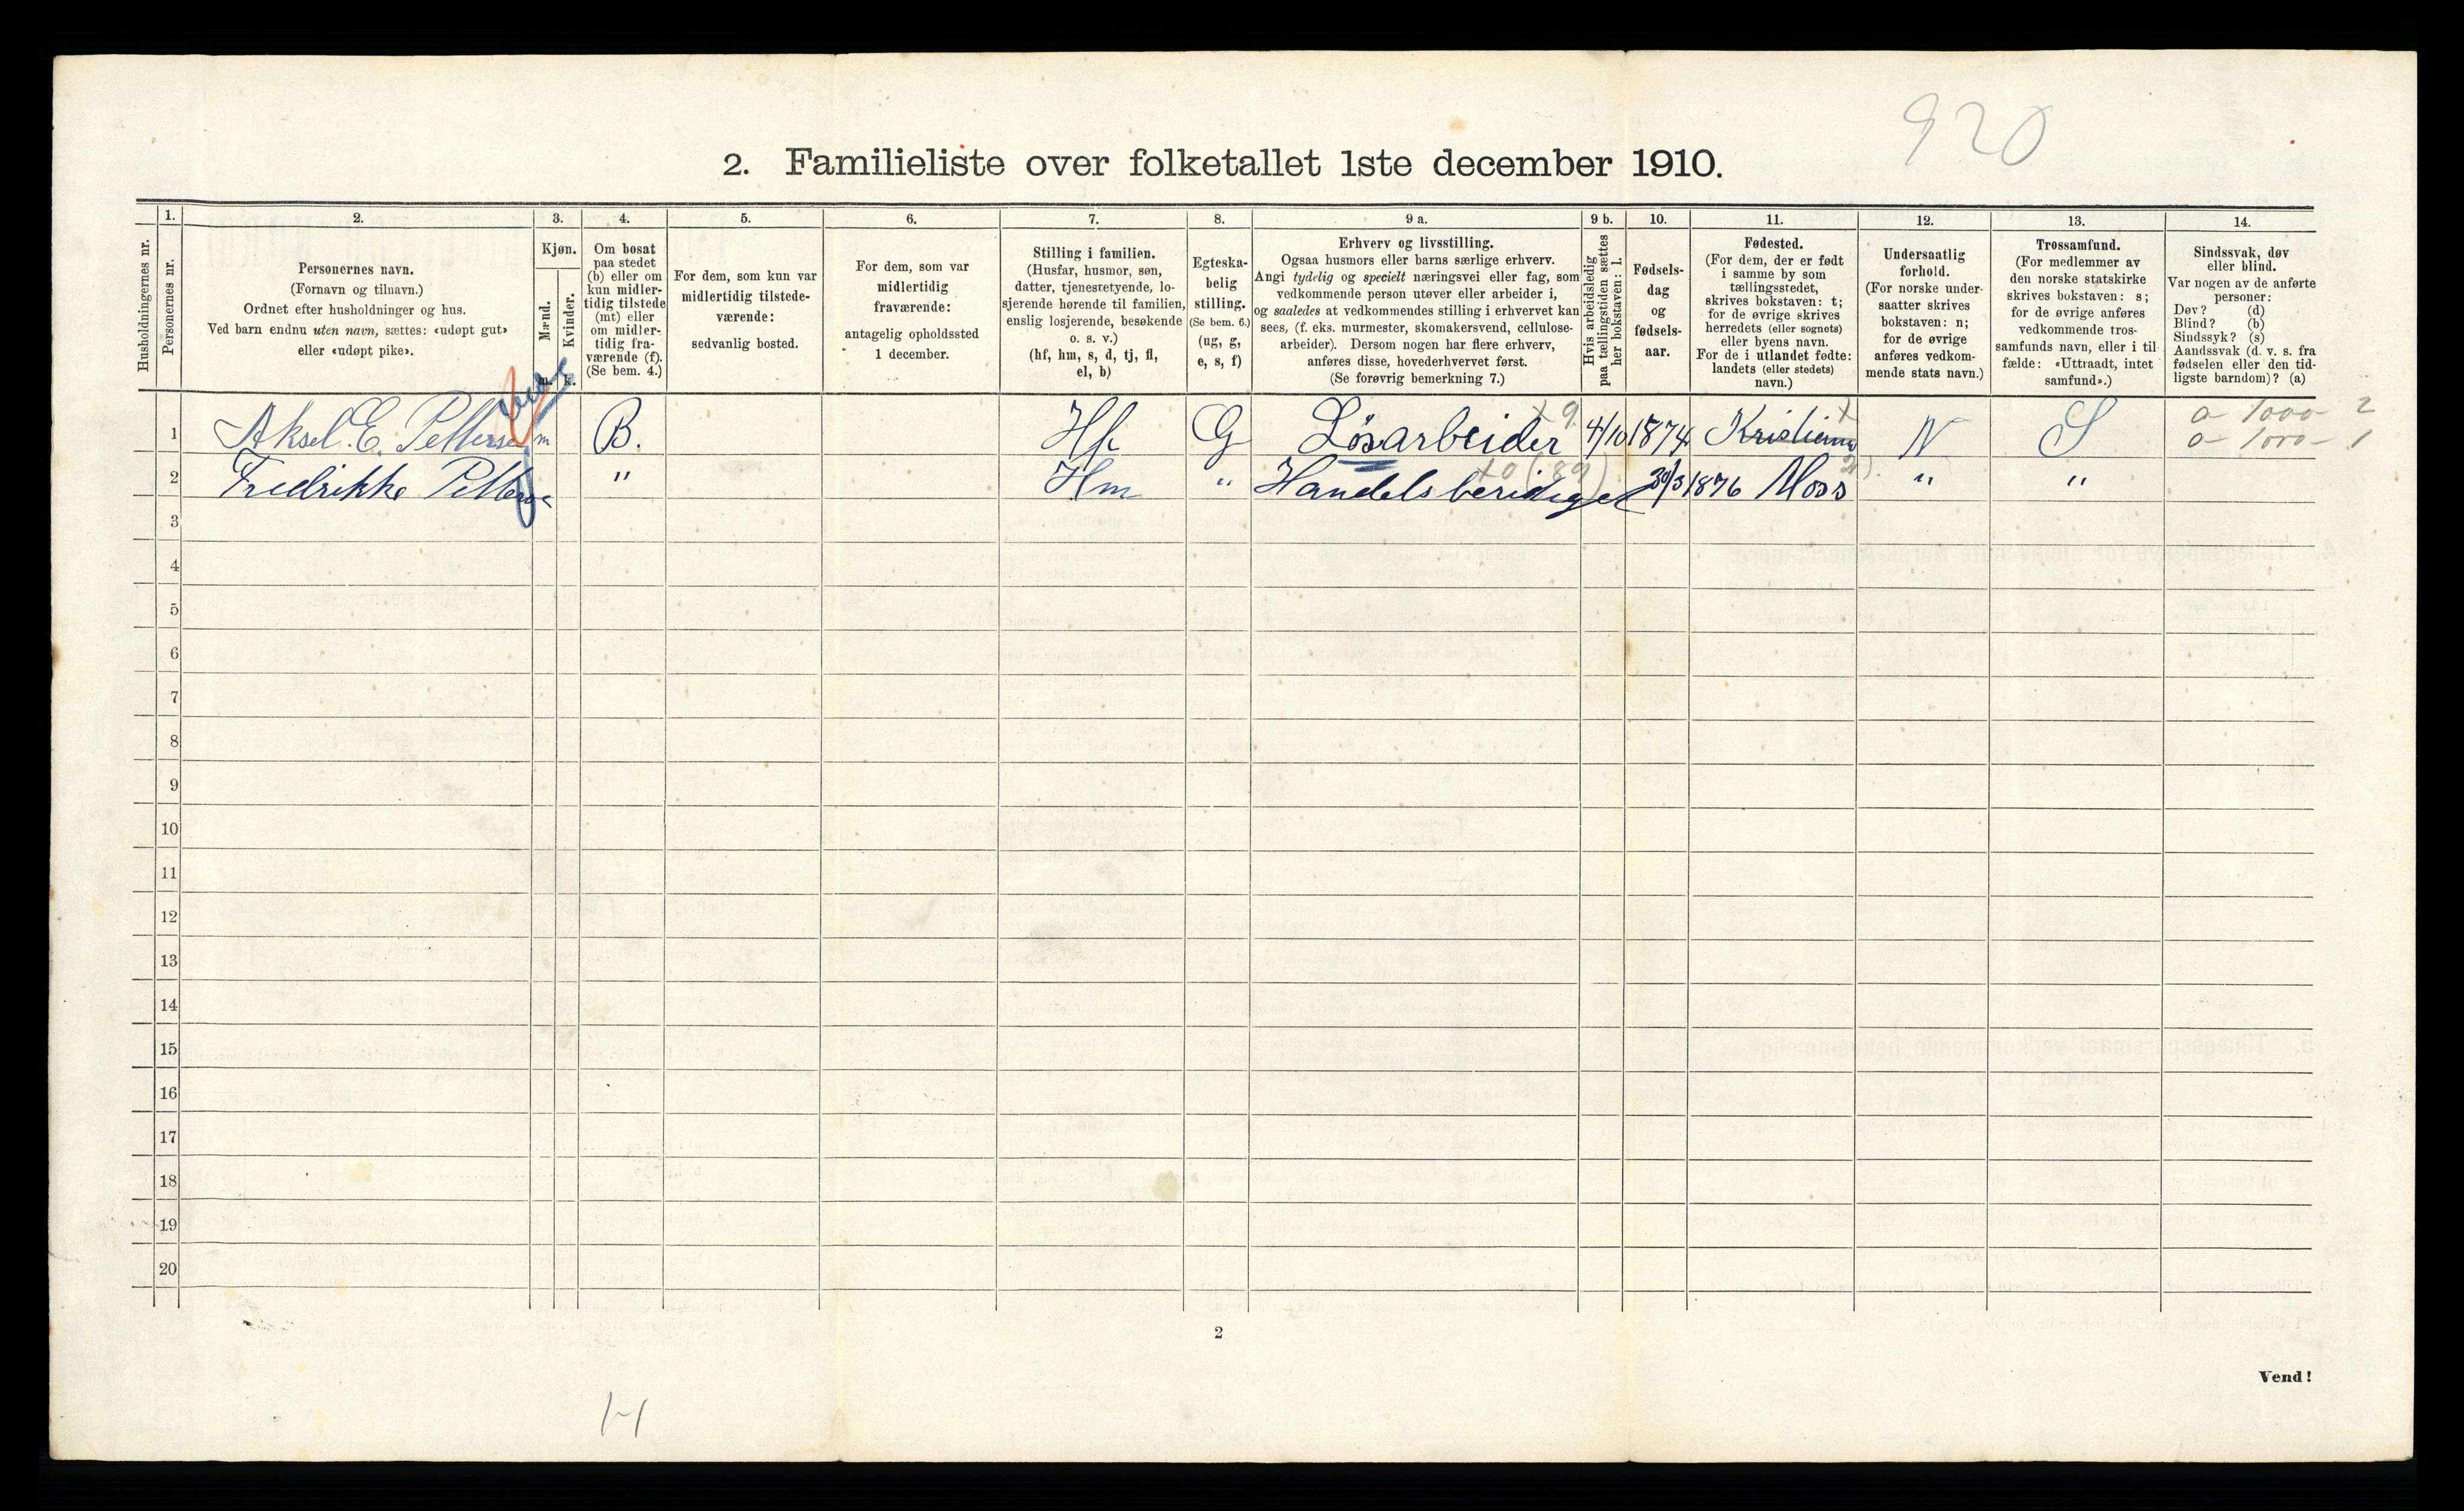 920
2. Familieliste over folketallet 1ste december 1910.
Husholdningernes nr.
1.
Personernes nr.
2.
Personernes navn.
(Fornavn og tilnavn.)
Ordnet efter husholdninger og hus.
Ved barn endnu uten navn, sættes: «udøpt gut»
eller «udøpt pike».
3.
Kjøn.
Mænd.
Kvinder.
m. k.
4.
Om bosat
paa stedet
(b) eller om
kun midler-
tidig tilstede
(mt) eller
om midler-
tidig fra-
værende (f).
(Se bem. 4.)
5.
For dem, som kun var
midlertidig tilstede-
værende:
sedvanlig bosted.
6.
For dem, som var
midlertidig
fraværende:
antagelig opholdssted
1 december.
7.
Stilling i familien.
(Husfar, husmor, søn,
datter, tjenestetyende, lo-
sjerende hørende til familien,
enslig losjerende, besøkende
o. s. v.)
(hf, hm, s, d, tj, fl,
el, b)
8.
Egteska-
belig
stilling.
(Se bem. 6.)
(ug, g,
e, s, f)
9 a.
Erhverv og livsstilling.
Ogsaa husmors eller barns særlige erhverv.
Angi tydelig og specielt næringsvei eller fag, som
vedkommende person utøver eller arbeider i,
og saaledes at vedkommendes stilling i erhvervet kan
sees, (f. eks. murmester, skomakersvend, cellulose-
arbeider). Dersom nogen har flere erhverv,
anføres disse, hovederhvervet først.
(Se forøvrig bemerkning 7.)
9 b.
Hvis arbeidsledig
paa tællingstiden sættes
her bokstaven: l.
10.
Fødsels-
dag
og
fødsels-
aar.
11.
Fødested.
(For dem, der er født
i samme by som
tællingsstedet,
skrives bokstaven: t;
for de øvrige skrives
herredets (eller sognets)
eller byens navn.
For de i utlandet fødte:
landets (eller stedets)
navn.)
12.
Undersaatlig
forhold.
(For norske under-
saatter skrives
bokstaven: n;
for de øvrige
anføres vedkom-
mende stats navn.)
13.
Trossamfund.
(For medlemmer av
den norske statskirke
skrives bokstaven: s;
for de øvrige anføres
vedkommende tros-
samfunds navn, eller i til-
fælde: «Uttraadt, intet
samfund».)
14.
Sindssvak, døv
eller blind.
Var nogen av de anførte
personer:
Døv? (d)
Blind? (b)
Sindssyk? (s)
Aandssvak (d. v. s. fra
fødselen eller den tid-
ligste barndom)? (a)
x 9 x 0 - 1000 - 2
1 Aksel E. Pettersen m B. Hf G Løsarbeider 4/10 1874 Kristiania N S 0 - 1000 - 1
x 0 (89)
2 Fredrikke Pettersen " Hm " Handelsberidiget 30/3 1876 Moss " "
3
4
5
6
7
8
9
10
11
12
13
14
15
16
17
18
19
20
2
Vend!